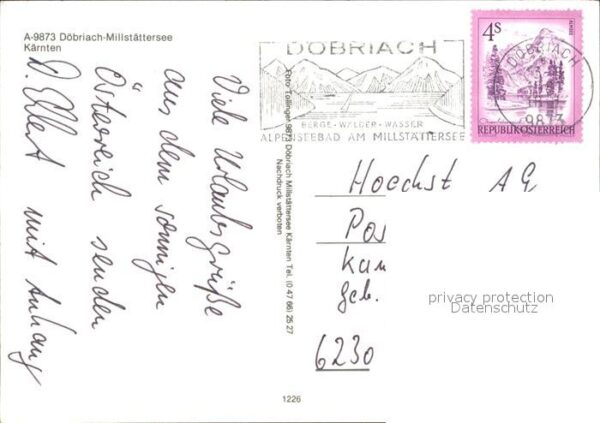 A-9873 Döbriach-Millstättersee
Kärnten
Viele Urlaubsgrüße
aus dem sonnigen
Österreich senden
D. Ehlert mit Anhang
Foto Tollinger 9873 Döbriach Millstättersee Kärnten Tel. (0 47 66) 25 27
Nachdruck verboten
1226
DÖBRIACH
BERGE-WÄLDER-WASSER
ALPENSEEBAD AM MILLSTÄTTERSEE
4S
REPUBLIK ÖSTERREICH
DÖBRIACH
9873
Hoechst AG
Pos
Kan
Geb.
6230
privacy protection
Datenschutz